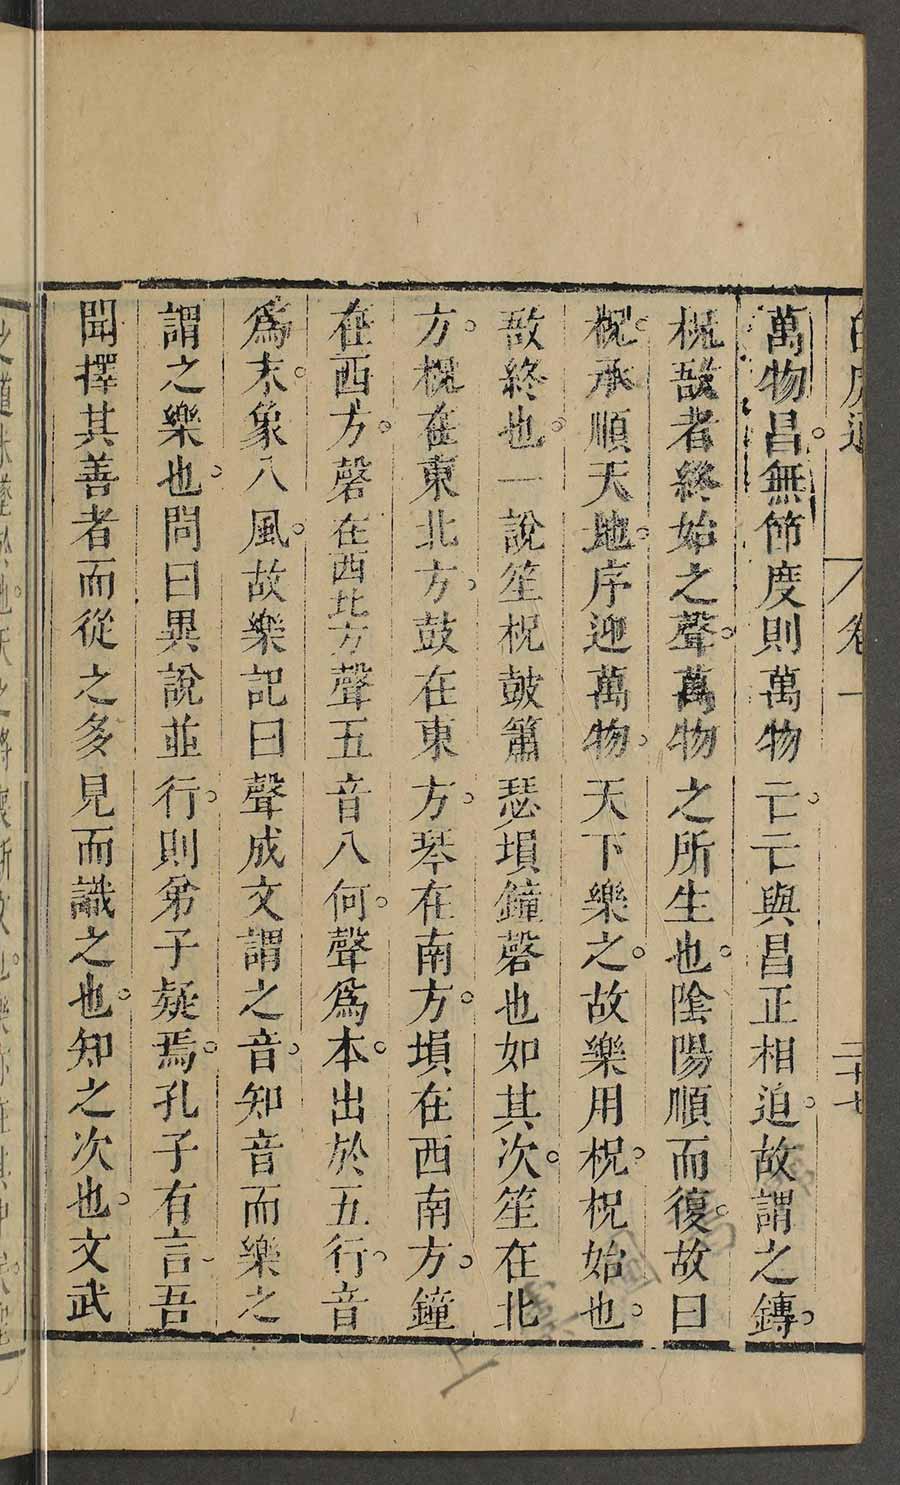 白虎通 卷一 二十七
萬物昌。無節度則萬物亡。亡與昌正相迫。故謂之鎛。
柷敔者終始之聲。萬物之所生也。陰陽順而復。故曰
柷。承順天地。序迎萬物。天下樂之。故樂用柷。柷始也。
敔終也。一說笙柷鼓簫瑟塤鐘磬也如其次。笙在北
方。柷在東北方。鼓在東方。琴在南方。塤在西南方。鐘
在西方。磬在西北方聲五音八何。聲爲本。出於五行。音
爲末。象八風。故樂記曰聲成文謂之音。知音而樂之
謂之樂也。問曰異說並行。則弟子疑焉。孔子有言。吾
聞擇其善者而從之多見而識之也。知之次也。文武